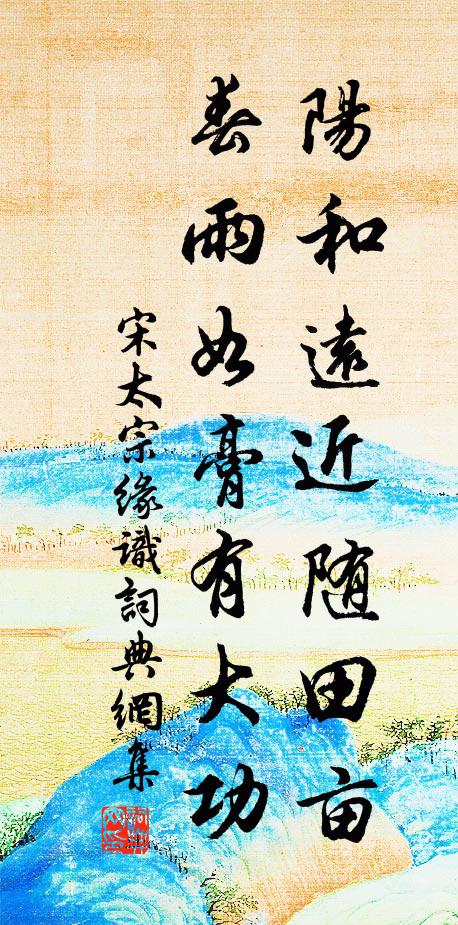 陽和遠近随田亩
春雨如膏有大功
宋太宗緣識詞典網集